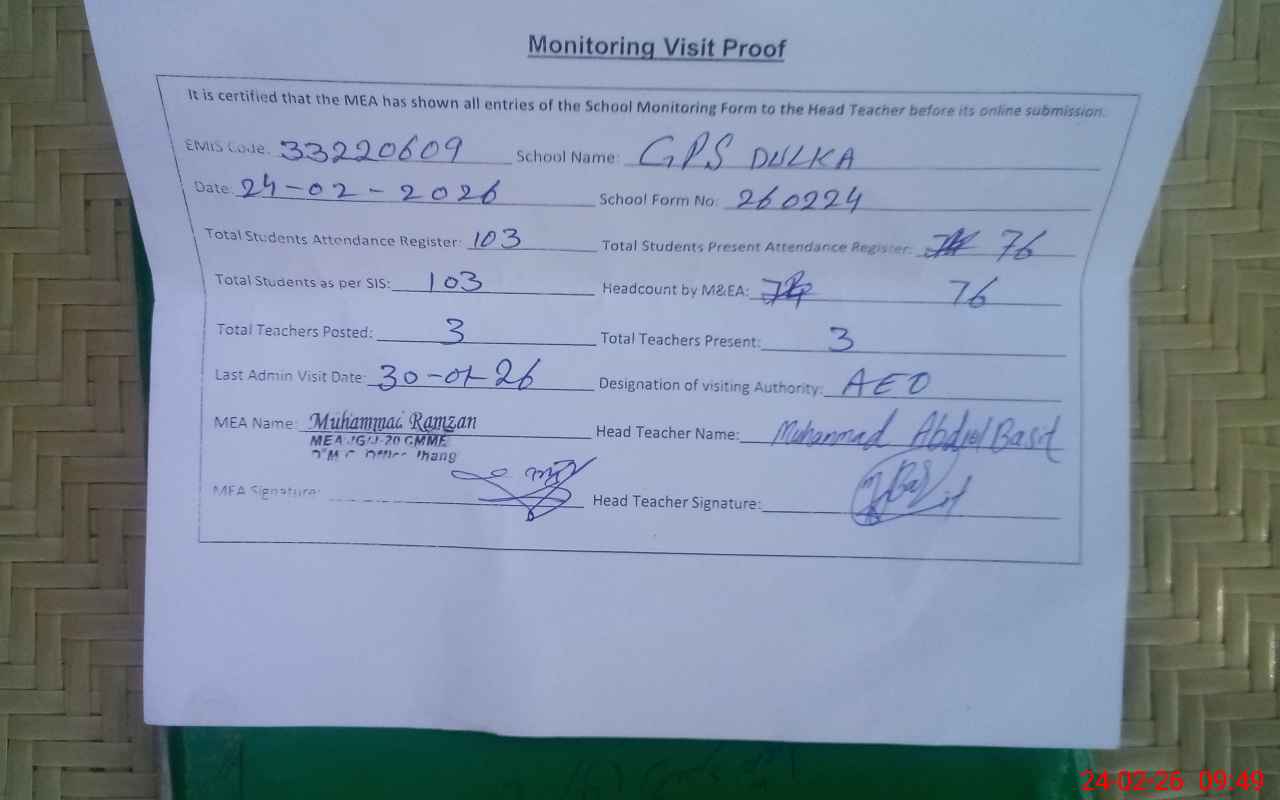 Monitoring Visit Proof
It is certified that the MEA has shown all entries of the School Monitoring Form to the Head Teacher before its online submission.
EMIS Code: 33220609 School Name: GPS DULKA
Date: 24-02-2026 School Form No: 260224
Total Students Attendance Register: 103 Total Students Present Attendance Register: 76
Total Students as per SIS: 103 Headcount by M&EA: 76
Total Teachers Posted: 3 Total Teachers Present: 3
Last Admin Visit Date: 30-01-26 Designation of visiting Authority: AEO
MEA Name: Muhammad Ramzan Head Teacher Name: Muhammad Abdul Basit
MEA
Jhang
MEA Signature: Head Teacher Signature:
24-02-26 09:49